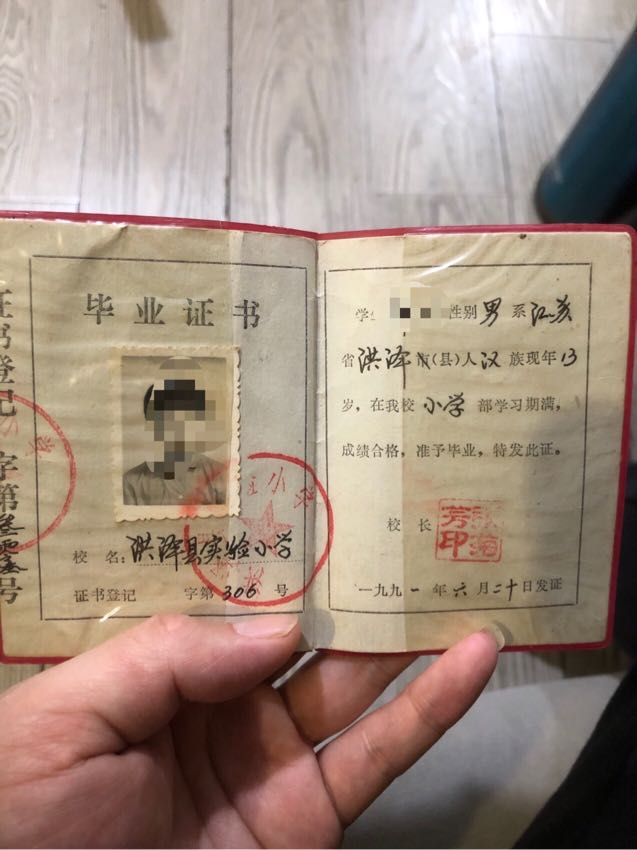 证书登记 字第 号
毕业证书
校 名：洪泽县实验小学
证书登记 字第306号
学 性别男系江苏
省洪泽市(县)人汉族现年13
岁，在我校小学部学习期满，
成绩合格，准予毕业，特发此证。
校 长
芳 印
一九九一年六月二十日发证